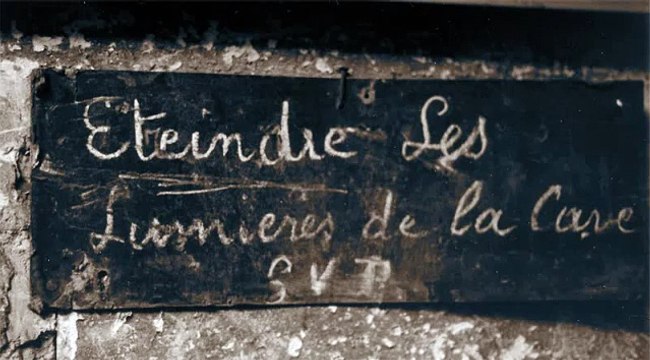 Eteindre Les
Lumieres de la Cave
S V P